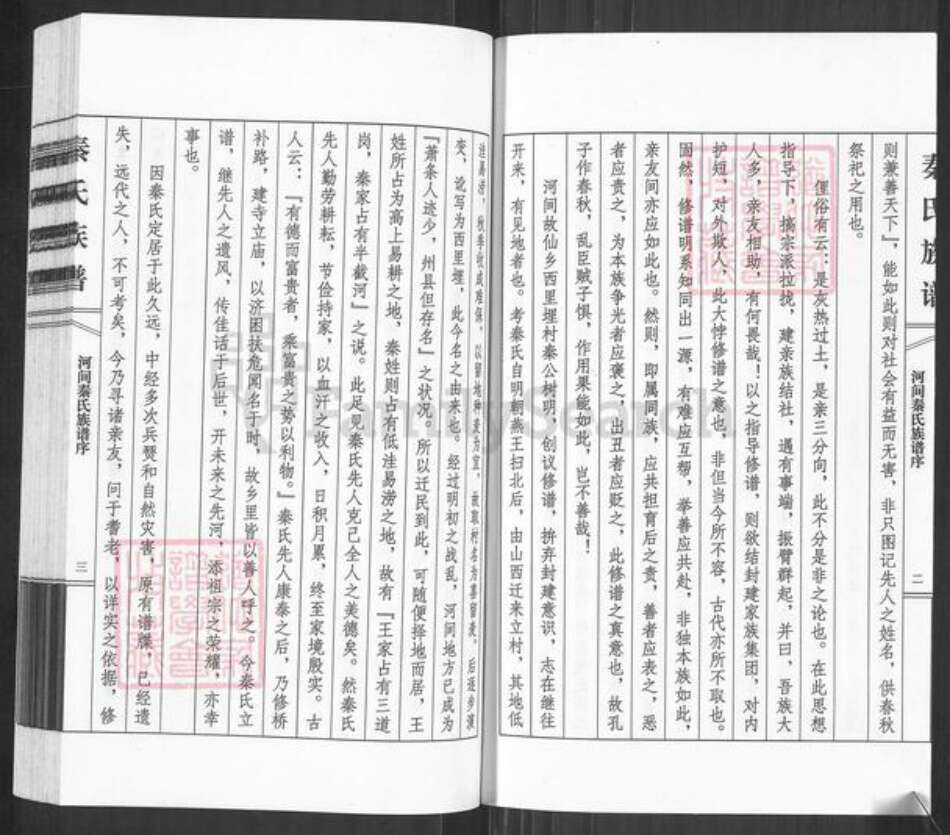 秦氏族谱
河间秦氏族谱序
二
则兼善天下』，能如此则对社会有益而无害，非只图记先人之姓名，供春秋
祭祀之用也。
俚俗有云：是灰热过土，是亲三分向，此不分是非之论也。在此思想
指导下，搞宗派拉拢，建亲族结社，遇有事端，振臂群起，并曰，吾族大
人多，亲友相助，有何畏哉！以之指导修谱，则欲结封建家族集团，对内
护短，对外欺人，此大悖修谱之意也，非但当今所不容，古代亦所不取也。
固然，修谱明系知同出一源，有难应互帮，举善应共赴，非独本族如此，
亲友间亦应如此也。然则，即属同族，应共担育后之责，善者应表之，恶
者应责之，为本族争光者应褒之，出丑者应贬之，此修谱之真意也，故孔
子作春秋，乱臣贼子惧，作用果能如此，岂不善哉！
河间故仙乡西里埋村秦公树明，创议修谱，拚弃封建意识，志在继往
开来，有见地者也。考秦氏自明朝燕王扫北后，由山西迁来立村，其地低
洼易涝，秋季收成难保，以留地种麦为宜，故取村名为喜留麦。后逐步演
变，讹写为西里埋，此今名之由来也。经过明初之战乱，河间地方已成为
『萧条人迹少，州县但存名』之状况。所以迁民到此，可随便择地而居，王
姓所占为高上易耕之地，秦姓则占有低洼易涝之地，故有『王家占有三道
岗，秦家占有半截河』之说。此足见秦氏先人克己全人之美德矣。然秦氏
先人勤劳耕耘，节俭持家，以血汗之收入，日积月累，终至家境殷实。古
人云：『有德而富贵者，乘富贵之势以利物。』秦氏先人康泰之后，乃修桥
补路，建寺立庙，以济困扶危闻名于时，故乡里皆以善人呼之。今秦氏立
谱，继先人之遗风，传佳话于后世，开未来之先河，添祖宗之荣耀，亦幸
事也。
因秦氏定居于此久远，中经多次兵燹和自然灾害，原有谱牒，已经遗
失，远代之人，不可考矣，今乃寻诸亲友，问于耆老，以详实之依据，修
秦氏族谱
河间秦氏族谱序
三
FamilySearch